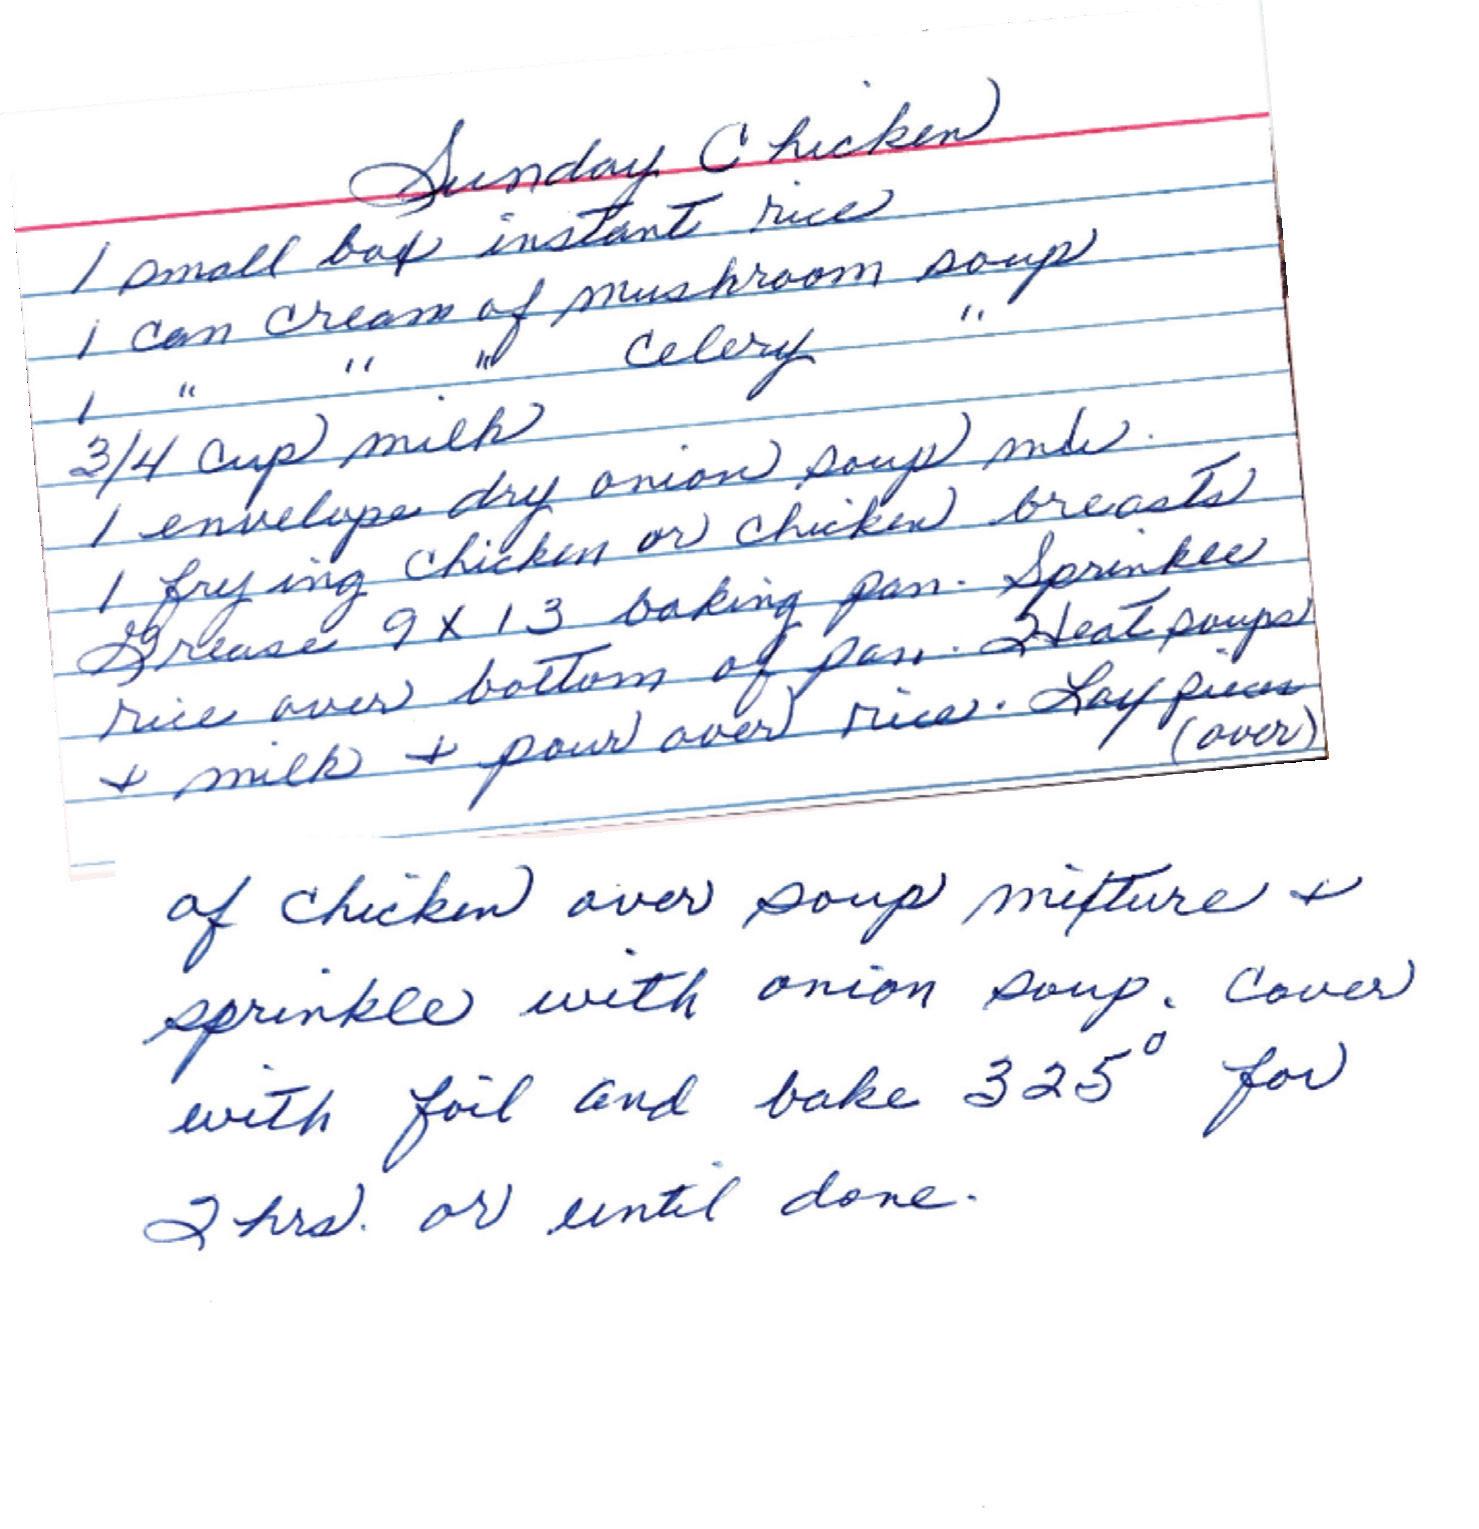 Sunday Chicken
1 small box instant rice
1 can cream of mushroom soup
1 " " " celery "
3/4 cup milk
1 envelope dry onion soup mix.
1 frying chicken or chicken breasts
Grease 9 x 13 baking pan. Sprinkle
rice over bottom of pan. Heat soups
+ milk + pour over rice. Lay pieces
(over)
of chicken over soup mixture +
sprinkle with onion soup. Cover
with foil and bake 325° for
2 hrs. or until done.